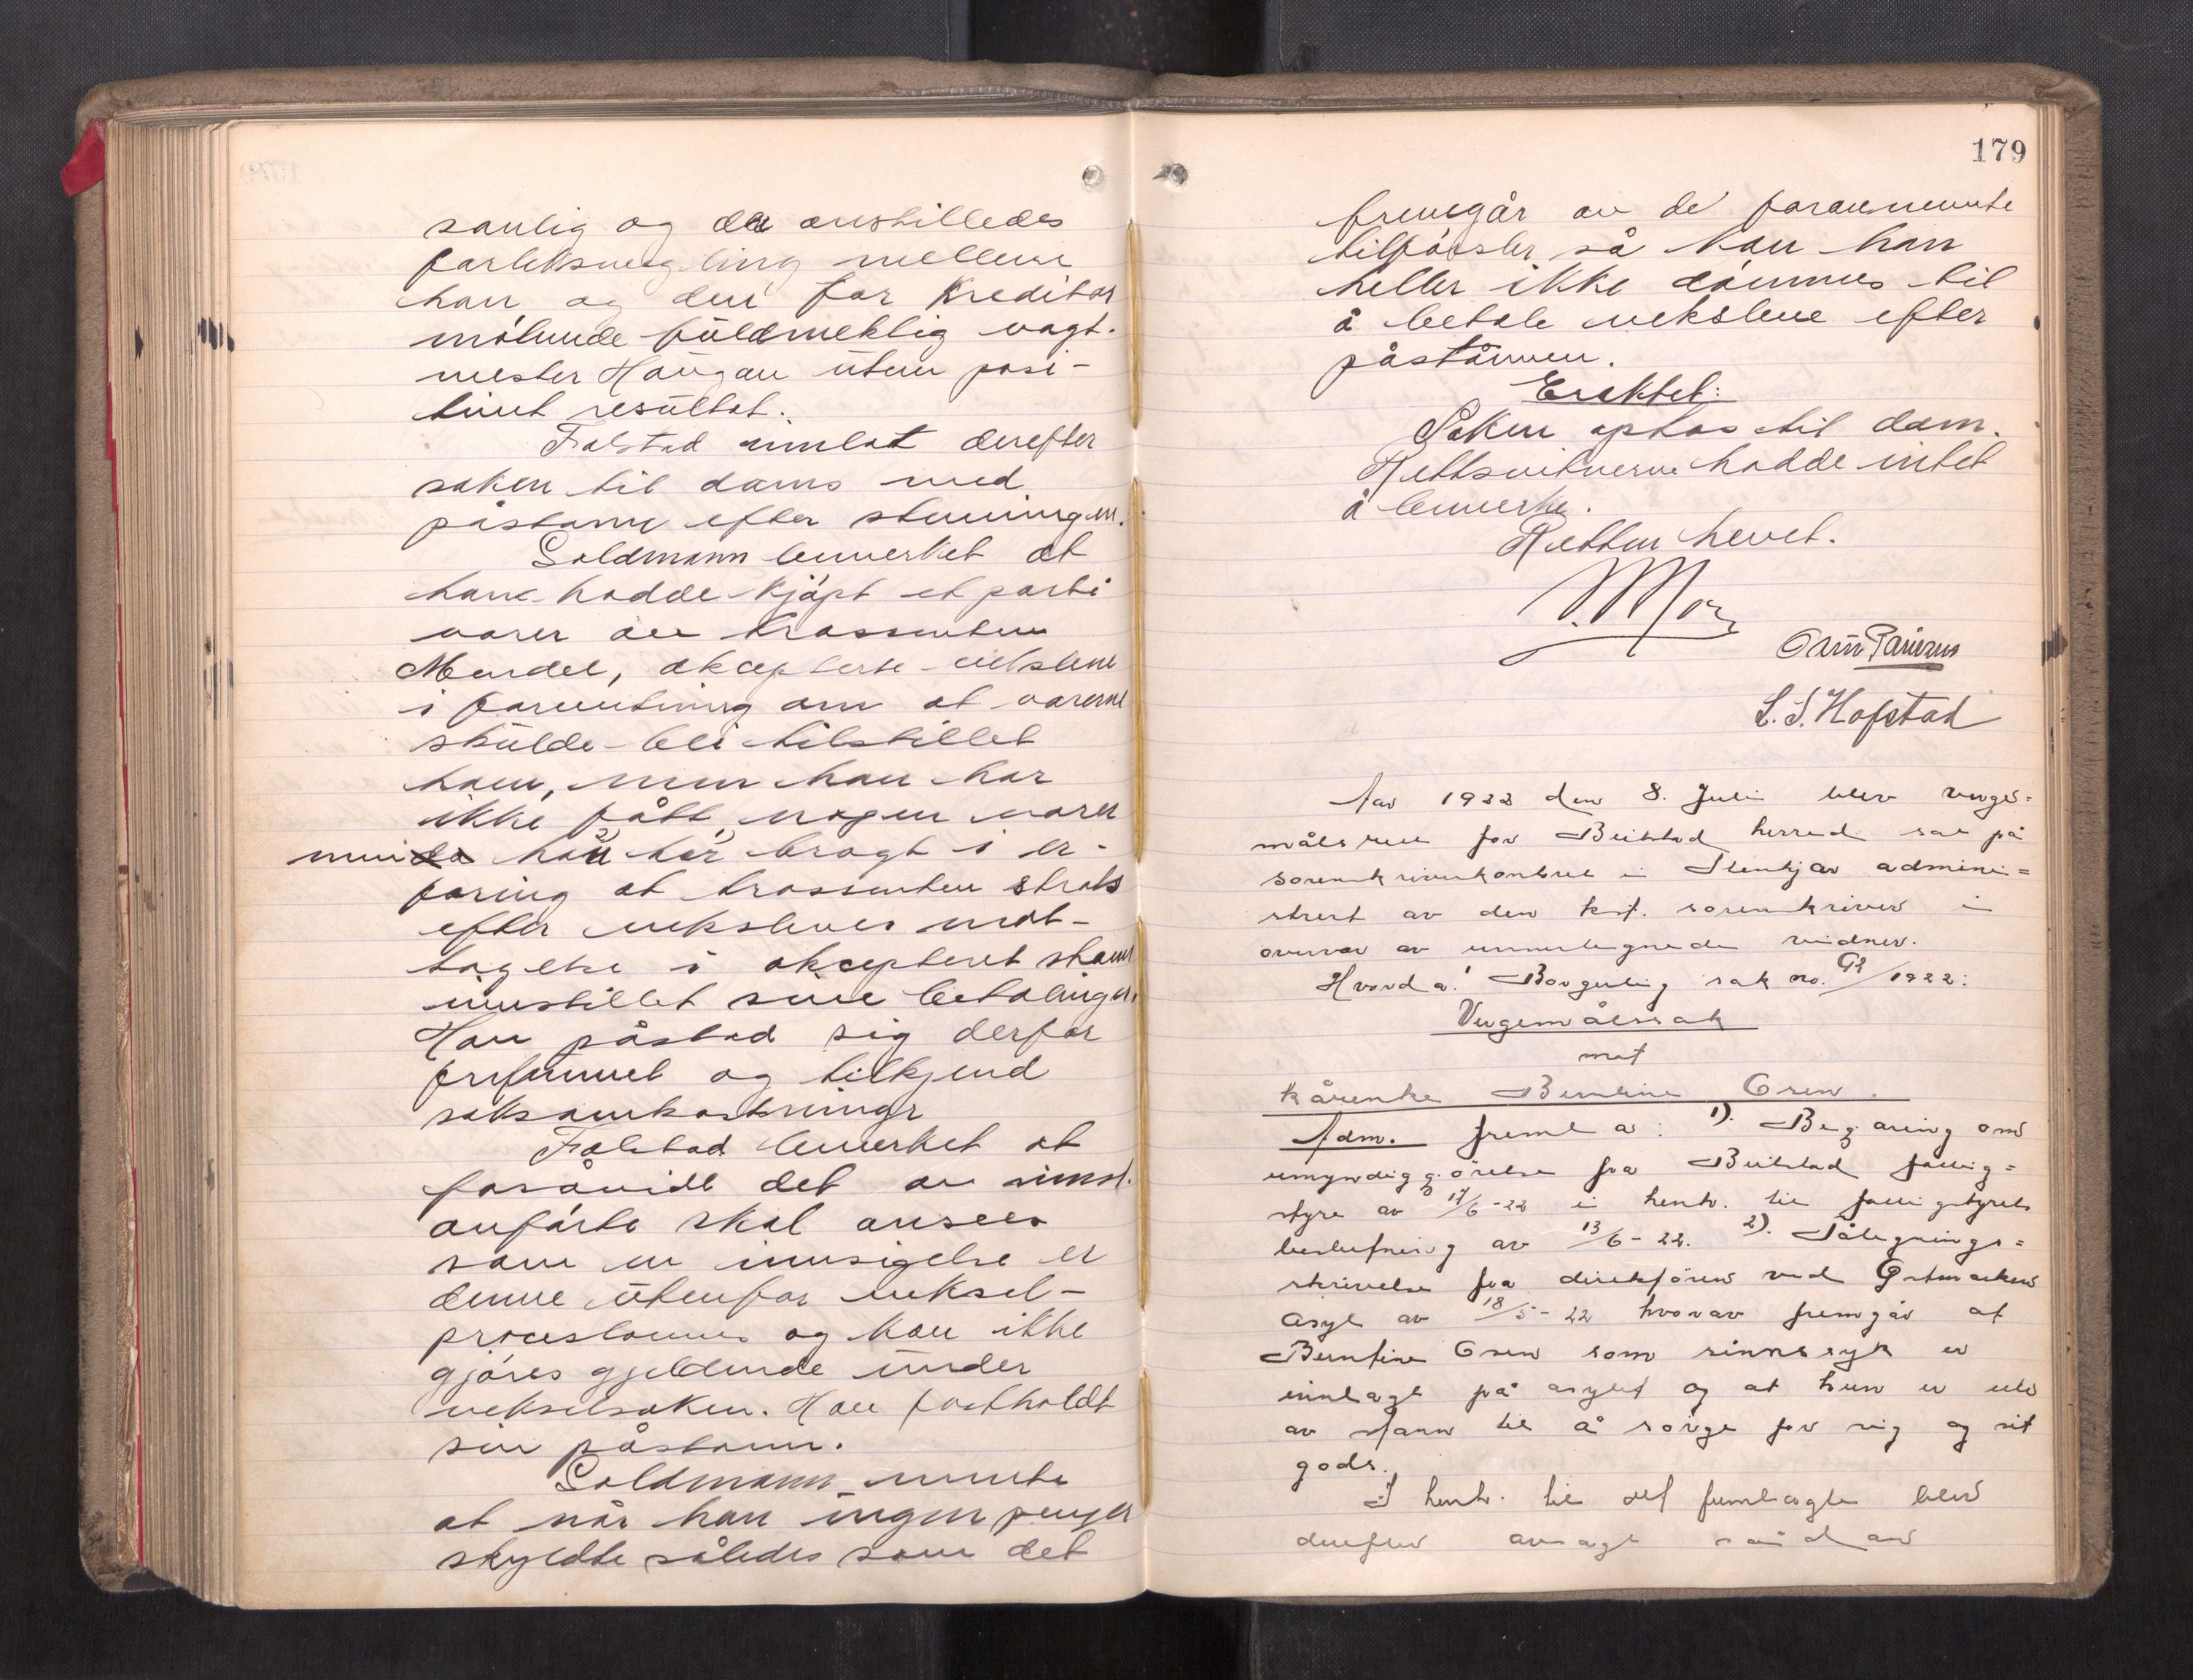 sonlig og der anstilledes
forliksmegling mellem
han og den for kreditor
møtende fuldmektig vagt-
mester Haugan uten posi-
tivt resultat.
Falstad innlot derefter
saken til doms med
påstann efter stevningen.
Goldmann bemerket at
han hadde kjøpt et parti
varer av trassenten
Mendel, aksepterte vekslene
i forventning om at varerne
skulde bli tilstillet
ham, men han har
ikke fått nogen varer
men han har bragt i er-
faring at trassenten straks
efter vekslenes mot-
tagelse i akcepteret stand
innstillet sine betalinger.
Han påstod sig derfor
frifunnet og tilkjend
saksomkostninger
Falstad bemerket at
forsåvidt det av innst.
anførte skal ansees
som en innsigelse er
denne utenfor veksel-
procesloven og kan ikke
gjøres gjeldende under
vekselsaken. Han fastholdt
sin påstann.
Goldmann mente
at når han ingen penger
skyldte således som det
179
fremgår av de forannevnte
tilførsler så kan han
heller ikke dømmes til
å betale vekslene efter
påstannen.
Erektet:
Saken optas til dom.
Rettsvitnerne hadde intet
å bemerke.
Retten hevet.
L. S. Hofstad
Aar 1922 den 8. Juli blev verge-
målsrett for Beitstad herred sat på
sorenskriverkontoret i Stenkjær admini-
strert av den kst. sorenskriver i
overvær av undertegnede vidner.
Hvorda: Borgerlig sak no. 92/1922:
Vergemålssak
mot
kårenke Berntine Osen.
Adm. fremla: 1). Begjæring om
umyndiggjørelse fra Beitstad fattig-
styre av 17/6-22 i henh. til fattigstyrets
beslutning av 13/6-22. 2). Pålegnings-
skrivelse fra direktøren ved Østmarken
asyl av 18/5-22 hvorav fremgår at
Berntine Osen som sinnssyk er
innlagt på asylet og at hun er ute
av stann til å sørge for sig og sit
gods.
I henh. til det fremlagte blev
derefter avsagt sådan